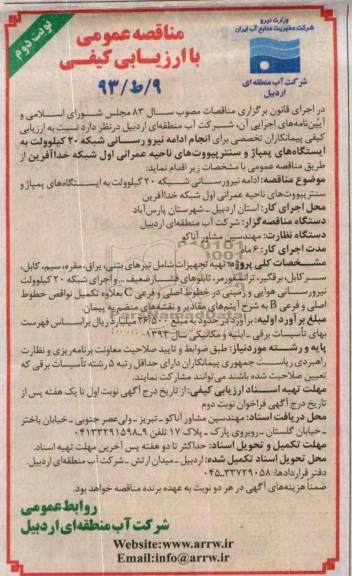 نوبت دوم
وزارت نیرو
شرکت مدیریت منابع آب ایران
شرکت آب منطقه‌ای
اردبیل
مناقصه عمومی
با ارزیابی کیفی
۹/ط/۹۳
در اجرای قانون برگزاری مناقصات مصوب سال ۸۳ مجلس شورای اسلامی و
آیین‌نامه‌های اجرایی آن، شرکت آب منطقه‌ای اردبیل در نظر دارد نسبت به ارزیابی
کیفی پیمانکاران تخصصی برای انجام ادامه نیرو رسانی شبکه ۲۰ کیلوولت به
ایستگاه‌های پمپاژ و سنتر پیووت‌های ناحیه عمرانی اول شبکه خداآفرین از
طریق مناقصه عمومی با مشخصات زیر اقدام نماید:
موضوع مناقصه: ادامه نیرورسانی شبکه ۲۰ کیلوولت به ایستگاه‌های پمپاژ و
سنتر پیووت‌های ناحیه عمرانی اول شبکه خداآفرین
محل اجرای کار: استان اردبیل - شهرستان پارس‌آباد
دستگاه مناقصه‌گزار: شرکت آب منطقه‌ای اردبیل
دستگاه نظارت: مهندسین مشاور آناکو
مدت اجرای کار: ۶ ماه
مشخصات کلی پروژه: تهیه تجهیزات شامل تیرهای بتنی، یراق، مقره، سیم، کابل،
سرکابل، برقگیر، ترانسفورمر، تابلوهای فشار ضعیف و اجرای شبکه ۲۰ کیلوولت
نیرورسانی هوایی و زمینی در خطوط اصلی و فرعی C بعلاوه تکمیل نواقص خطوط
اصلی و فرعی B به شرح آیتم‌های مقادیر و نقشه‌های منضم به پیمان.
مبلغ برآورد اولیه: برآورد در حدود به مبلغ میلیارد ریال براساس فهرست
بهای تأسیسات برقی - ابنیه و مکانیکی سال ۱۳۹۳
پایه و رشته مورد نیاز: طبق ضوابط و تایید صلاحیت معاونت برنامه‌ریزی و نظارت
راهبردی ریاست جمهوری پیمانکاران دارای حداقل رتبه ۵ رشته تأسیسات برقی که
تعیین صلاحیت شده باشند می‌توانند مشارکت نمایند.
مهلت تهیه اسناد ارزیابی کیفی: از تاریخ درج آگهی نوبت اول تا یک هفته پس از
تاریخ درج آگهی فراخوان نوبت دوم
محل دریافت اسناد: مهندسین مشاور آناکو - تبریز - ولی‌عصر جنوبی - خیابان باختر
- خیابان گلستان - روبروی پارک - پلاک ۱۷ تلفن ۹-۰۴۱۳۳۲۹۱۵۹۸
مهلت تکمیل و تحویل اسناد: حداکثر تا دو هفته پس آخرین مهلت تهیه اسناد.
محل تحویل اسناد تکمیل شده: اردبیل - میدان ارتش - شرکت آب منطقه‌ای اردبیل،
دفتر قراردادها: ۳۳۷۲۹۰۵۸-۰۴۵
ضمناً هزینه‌های آگهی در هر دو نوبت به عهده برنده مناقصه خواهد بود.
روابط عمومی
شرکت آب منطقه‌ای اردبیل
Website:www.arrw.ir
Email:info@arrw.ir